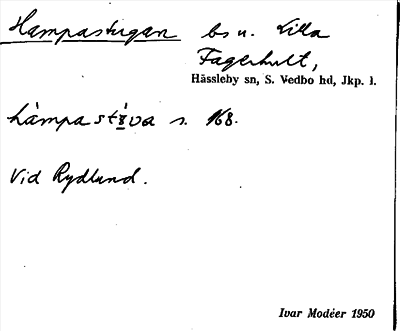 Hampastugan bs u. Lilla
Fagerhult,
Hässleby sn, S. Vedbo hd, Jkp. l.
hàmpa stúva s. 168.
Vid Rydlund.
Ivar Modéer 1950